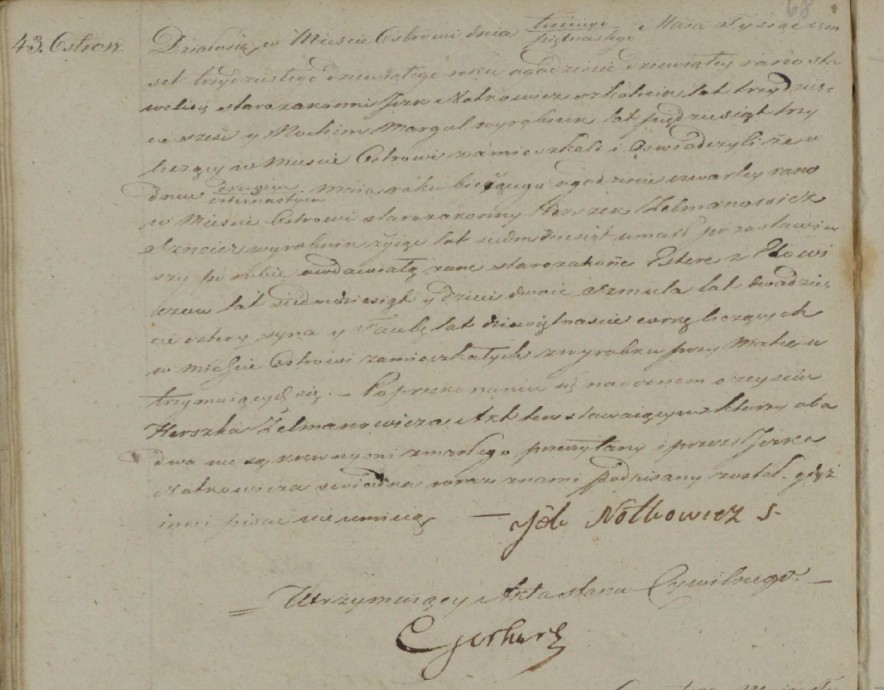 68
43. Ostrów. Działo się w Mieście Ostrowi dnia trzeciego/piętnastego Maia tysiąc ośm
set trzydziestego dziewiątego roku o godzinie dziewiątey rano sta
wili się starozakonni Jcek Notkowicz szkolnik lat trzydzieś
ci sześć y Mochim wyrobnik lat pięćdziesiąt trzy
liczący w Mieście Ostrowi zamieszkali i oświadczyli że w
dniu maia roku bieżącego o godzinie czwartey rano
w Mieście Ostrowi starozakonny Herszek Zelmanowicz
wyrobnik żyjąc lat siedmdziesiąt umarł pozostawiw
szy po sobie owdowiałą żonę starozakonę Esterę z
lat siedmdziesiąt y dzieci dwoie Szmula lat dwadzieś
cia cztery syna y lat dziewiętnaście córkę liczących
w mieście Ostrowi zamieszkałych z wyrobku przy Matce u
trzymuiących się. — Po przekonaniu się naocznem o zeyściu
Herszka Zelmanowicza Akt ten stawaiącym którzy oba
dwa nie są krewnymi zmarłego przeczytany i przez Jcka
Notkowicza świadka oraz z nami podpisany został. gdyż
inni pisać nie umieią — Notkowicz S.
= Utrzymuiący Akta stanu Cywilnego. —